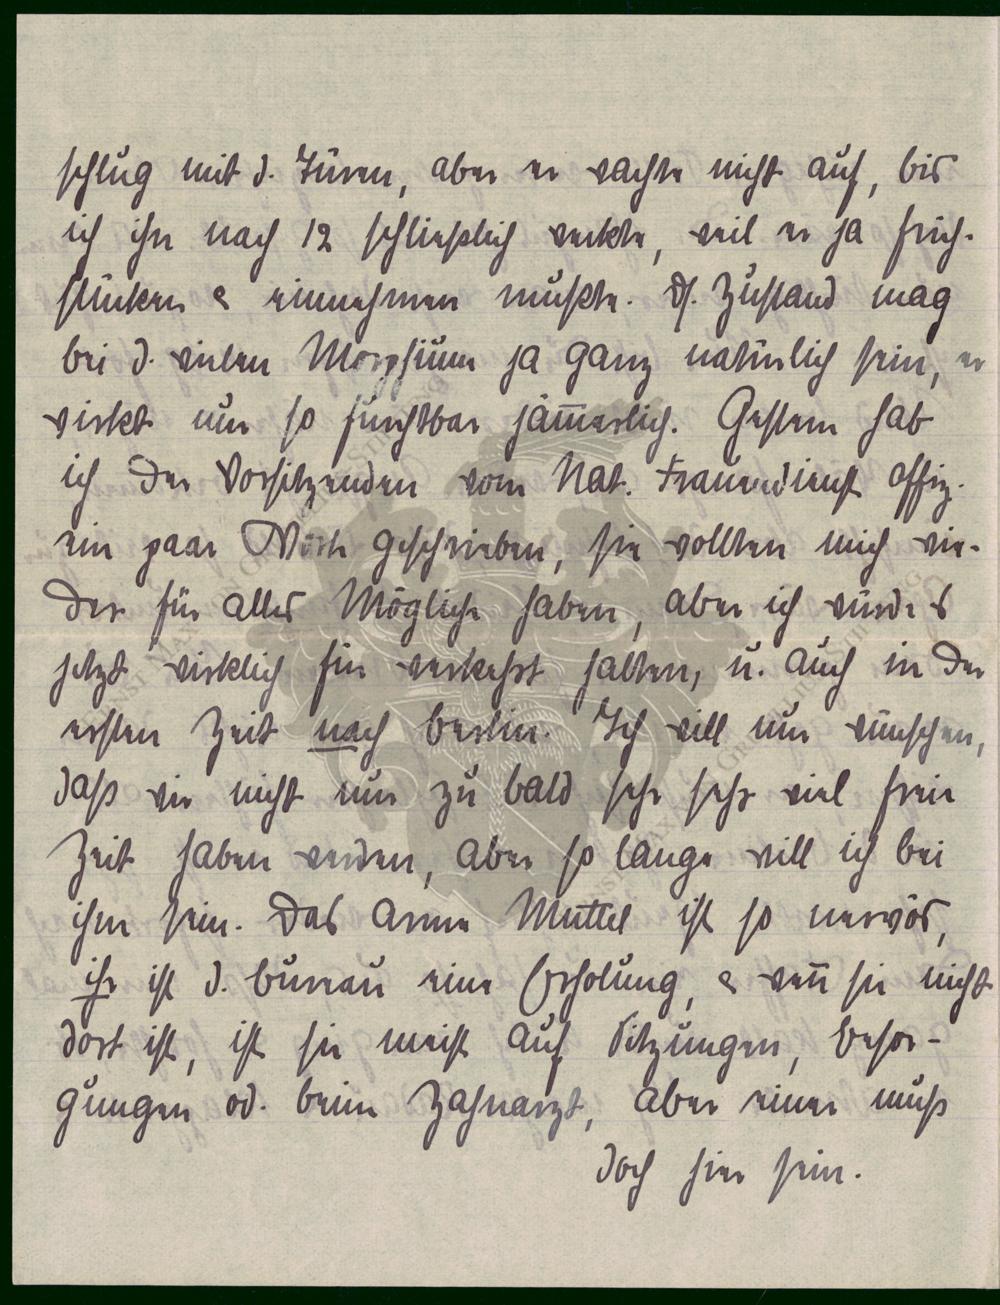 schlug mit d. Türen, aber er wachte nicht auf, bis
ich ihn nach 12 schließlich weckte, weil er ja früh-
stücken & einnehmen mußte. Ds. Zustand mag
bei d. vielen Morphium ja ganz natürlich sein, er
wirkt nur so furchtbar jam̅erlich. Gestern hab
ich der Vorsitzenden vom Nat. Frauendienst offiz.
ein paar Worte geschrieben, sie wollten mich wie-
der für alles Mögliche haben, aber ich würde es
jetzt wirklich für verkehrt halten, u. auch in der
ersten Zeit nach Berlin. Ich will nur wünschen,
daß wir nicht nur zu bald sehr sehr viel freie
Zeit haben werden, aber so lange will ich bei
ihm sein. Das arme Muttel ist so nervös,
ihr ist d. Bureau eine Erholung, & wen̅ sie nicht
dort ist, ist sie meist auf Sitzungen, Besor-
gungen od. beim Zahnarzt, aber einer muß
doch hier sein.